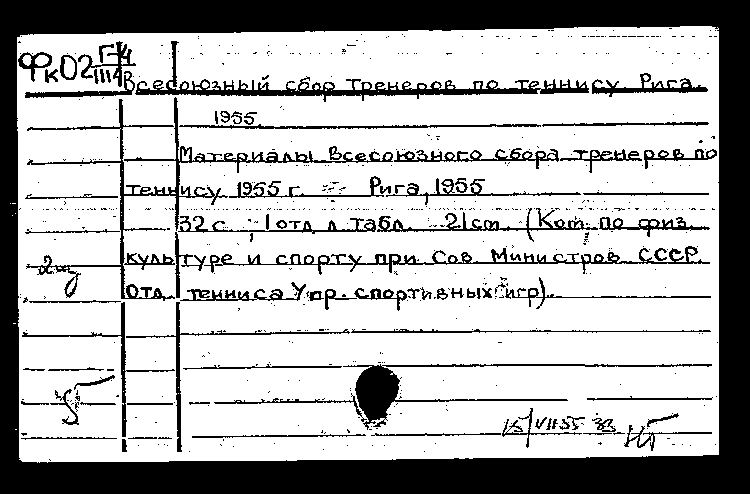 Фк02 Г-4
III4
Всесоюзный сбор тренеров по теннису Рига.
1955
Материалы Всесоюзного сбора тренеров по
теннису 1955 г. Рига, 1955
32 с ; 1 отд л. табл. 21 cm. (Ком. по физ.
культуре и спорту при Сов Министров СССР.
Отд. тенниса Упр. спортивных игр).
15/VII 55